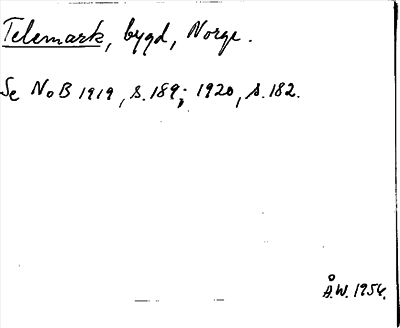 Telemark, bygd, Norge.
Se NoB 1919, s. 189; 1920, s. 182.
Å.W. 1954.